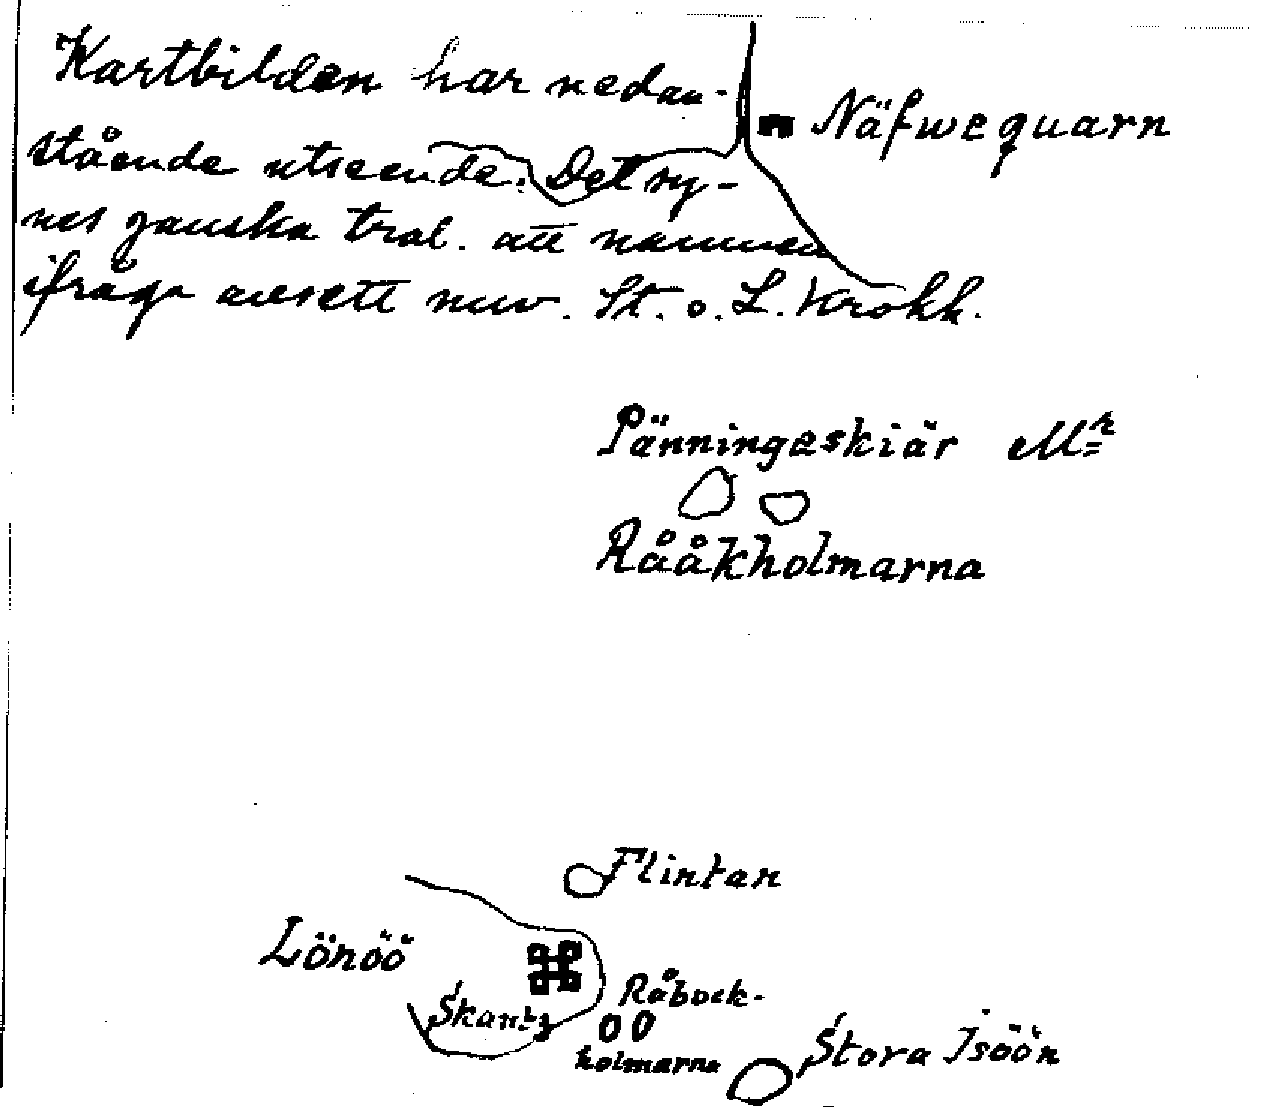 Kartbilden har nedan-
Näfwequarn
stående utseende. Det sy-
nes ganska trol. att namnen
ifråga avsett nuv. St. o. L. Kråkh.
Pänningeskiär Mr
Rååkholmarna
Flintan
Lönöö
Skantz
Råbock-
holmarna
Stora Isöön